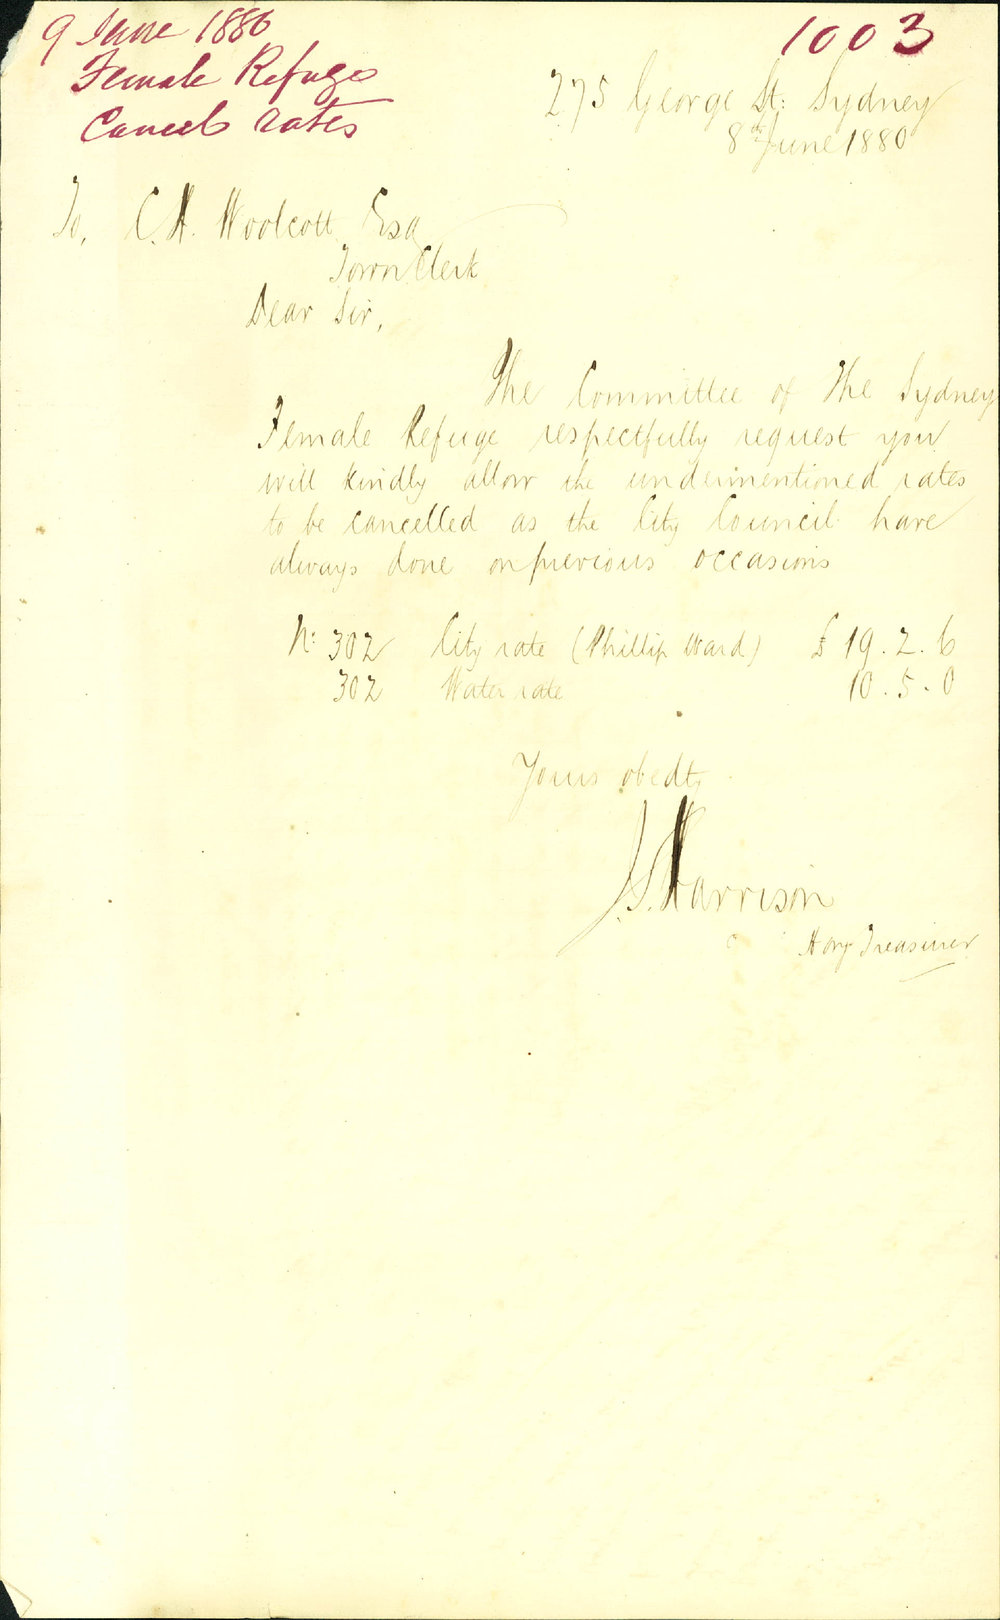 9 June 1880
Female Refuge
Cancel rates
1003
275 George St: Sydney
8th June 1880
To, C. H. Woolcott Esq
Town Clerk
Dear Sir,
The Committee of The Sydney
Female Refuge respectfully request you
will kindly allow the undermentioned rates
to be cancelled as the City Council have
always done on previous occasions
No: 302 City rate (Phillip Ward) £ 19. 2. 6
302 Water rate 10. 5. 0
Yours obedtly
J. S. Harrison
Hony Treasurer